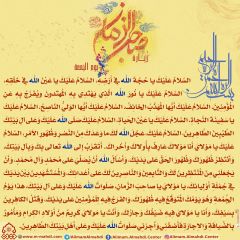 زيارة
صاحب الزمان
يوم الجمعة
السَّلامُ عَلَيْكَ يا حُجَّةَ الله في أَرْضِهِ، السَّلامُ عَلَيْكَ يا عَيْنَ الله في خَلْقِهِ،
السَّلامُ عَلَيْكَ يا نُورَ الله الَّذي يَهْتَدي بِهِ الْمُهْتَدونَ وَيُفَرَّجُ بِهِ عَنِ
الْمُؤْمِنينَ، السَّلامُ عَلَيْكَ أَيُّهَا الْمُهَذَّبُ الْخائِفُ، السَّلامُ عَلَيْكَ أَيُّهَا الْوَلِيُّ النّاصِحُ، السَّلامُ عَلَيْكَ
يا سَفينَةَ النَّجاةِ، السَّلامُ عَلَيْكَ يا عَيْنَ الْحَياةِ، السَّلامُ عَلَيْكَ صَلَّى الله عَلَيْكَ وَعَلى آلِ بَيْتِكَ
الطَّيِّبينَ الطّاهِرينَ، السَّلامُ عَلَيْكَ عَجَّلَ الله لَكَ ما وَعَدَكَ مِنَ النَّصْرِ وَظُهُورِ الأَمْرِ، السَّلامُ
عَلَيْكَ يا مَوْلايَ أَنَا مَوْلاكَ عارِفٌ بِأُولاكَ وَأُخْراكَ، أَتَقَرَّبُ إِلَى الله تَعالى بِكَ وَبِآلِ بَيْتِكَ،
وَأَنْتَظِرُ ظُهُورَكَ وَظُهُورَ الْحَقِّ عَلى يَدَيْكَ، وَأَسْأَلُ الله أَنْ يُصَلِّيَ عَلى مُحَمَّد وَآلِ مُحَمَّد، وَأَنْ
يَجْعَلَني مِنَ الْمُنْتَظِرينَ لَكَ وَالتّابِعينَ وَالنّاصِرينَ لَكَ عَلى أَعْدائِكَ، وَالْمُسْتَشْهَدينَ بَيْنَ يَدَيْكَ
في جُمْلَةِ أَوْلِيائِكَ، يا مَوْلايَ يا صاحِبَ الزَّمانِ، صَلَواتُ الله عَلَيْكَ وَعَلى آلِ بَيْتِكَ، هذا يَوْمُ
الْجُمُعَةِ وَهُوَ يَوْمُكَ الْمُتَوَقَّعُ فيهِ ظُهُورُكَ، وَالْفَرَجُ فيهِ لِلْمُؤْمِنينَ عَلى يَدَيْكَ، وَقَتْلُ الْكافِرينَ
بِسَيْفِكَ، وَأَنَا يا مَوْلايَ فيهِ ضَيْفُكَ وَجارُكَ، وَأَنْتَ يا مَوْلايَ كَريمٌ مِنْ أَوْلادِ الْكِرامِ وَمَأْمُورٌ
بِالضِّيافَةِ وَالإِجارَةِ فَأَضِفْني وَأَجِرْني صَلَواتُ الله عَلَيْكَ وَعَلى أَهْلِ بَيْتِكَ الطّاهِرينَ.
Alimam.Almahdi.Center